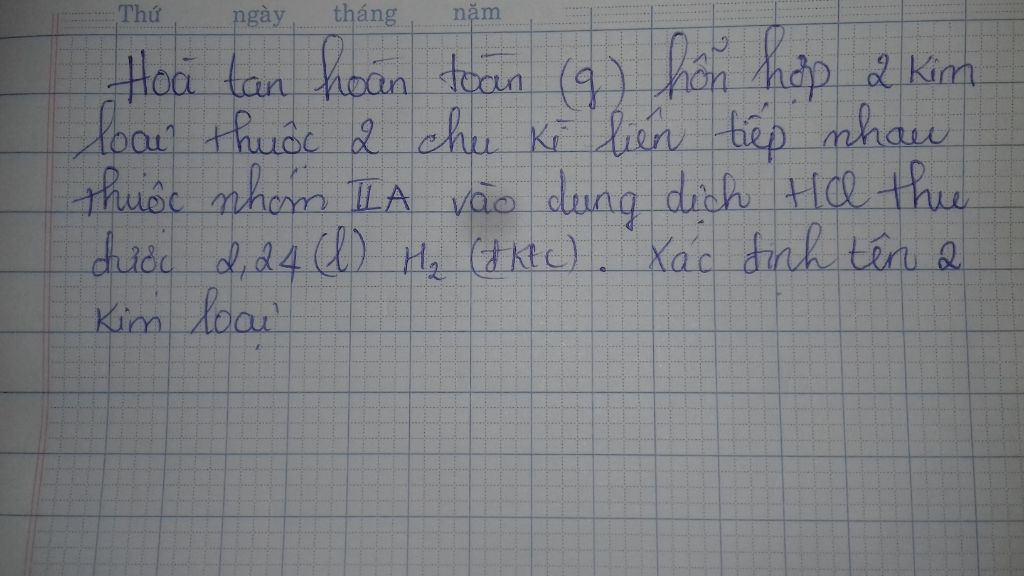 Thứ ngày tháng năm
Hoà tan hoàn toàn (g) hỗn hợp 2 kim
loại thuộc 2 chu kì liên tiếp nhau
thuộc nhóm IIA vào dung dịch HCl thu
được 2,24 (l) H₂ (đktc). Xác định tên 2
kim loại